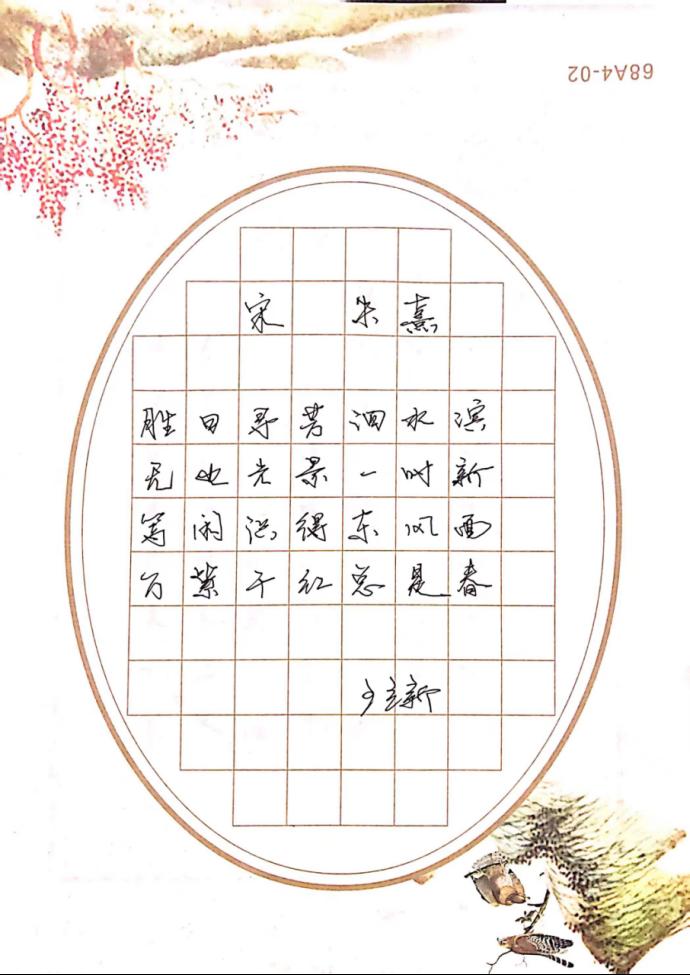 68A4-02
宋 朱熹
胜日寻芳泗水滨
无边光景一时新
等闲识得东风面
万紫千红总是春